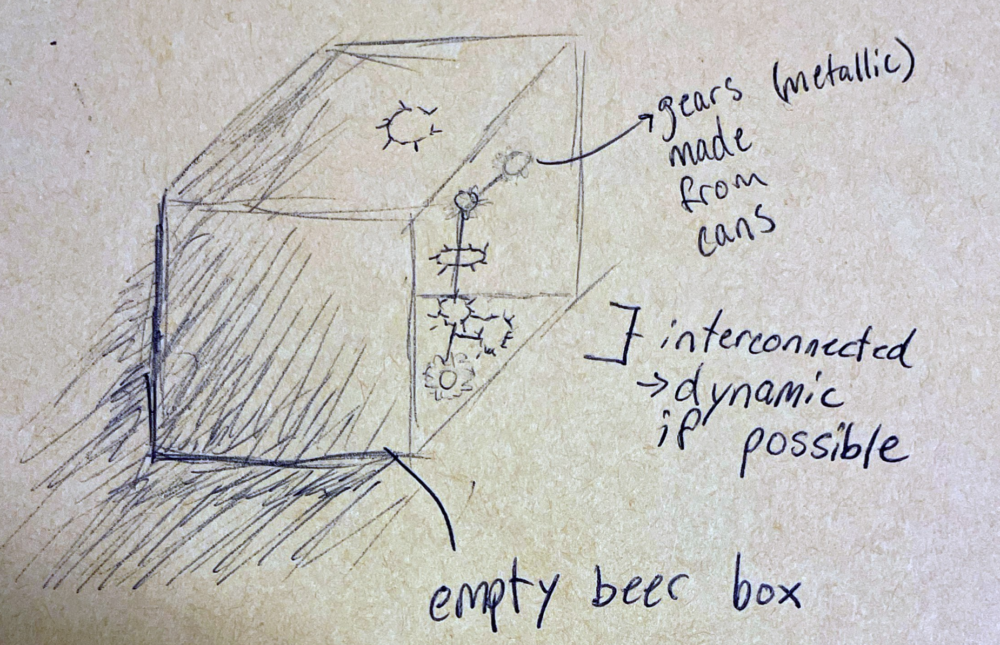 gears (metallic)
made
from
cans
interconnected
→ dynamic
if possible
empty beer box